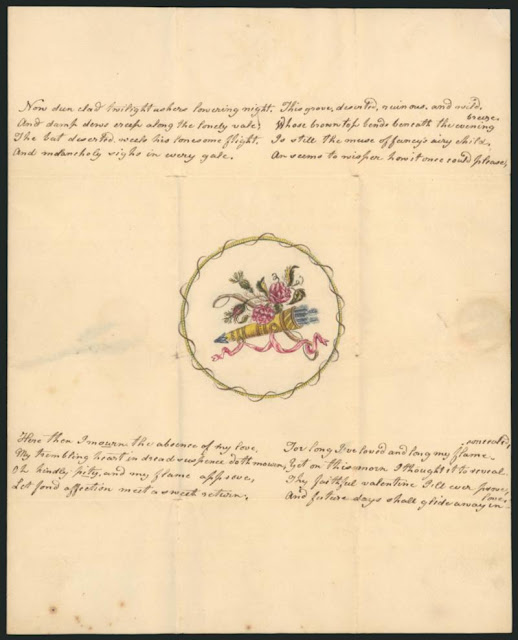 Now dun clad twilight ushers lowering night,
And damp dews creep along the lonely vale;
The bat deserted, weels his lonesome flight,
And melancholy sighs in every gale.
This grove, deserted, ruinous, and wild,
breeze
Whose brown tops bends beneath the evening
Is still the muse of fancy's airy child,
An seems to wisper how it once could please,
Here then I mourn the absence of my love,
My trembling heart in dread suspence doth mourn,
Oh kindly pity, and my flame approve,
Let fond affection meet a sweet return.
concealed,
For long I've loved and long my flame
Yet on this morn I thought it to reveal
Thy faithful valentine I'll ever prove,
love
And future days shall glide away in